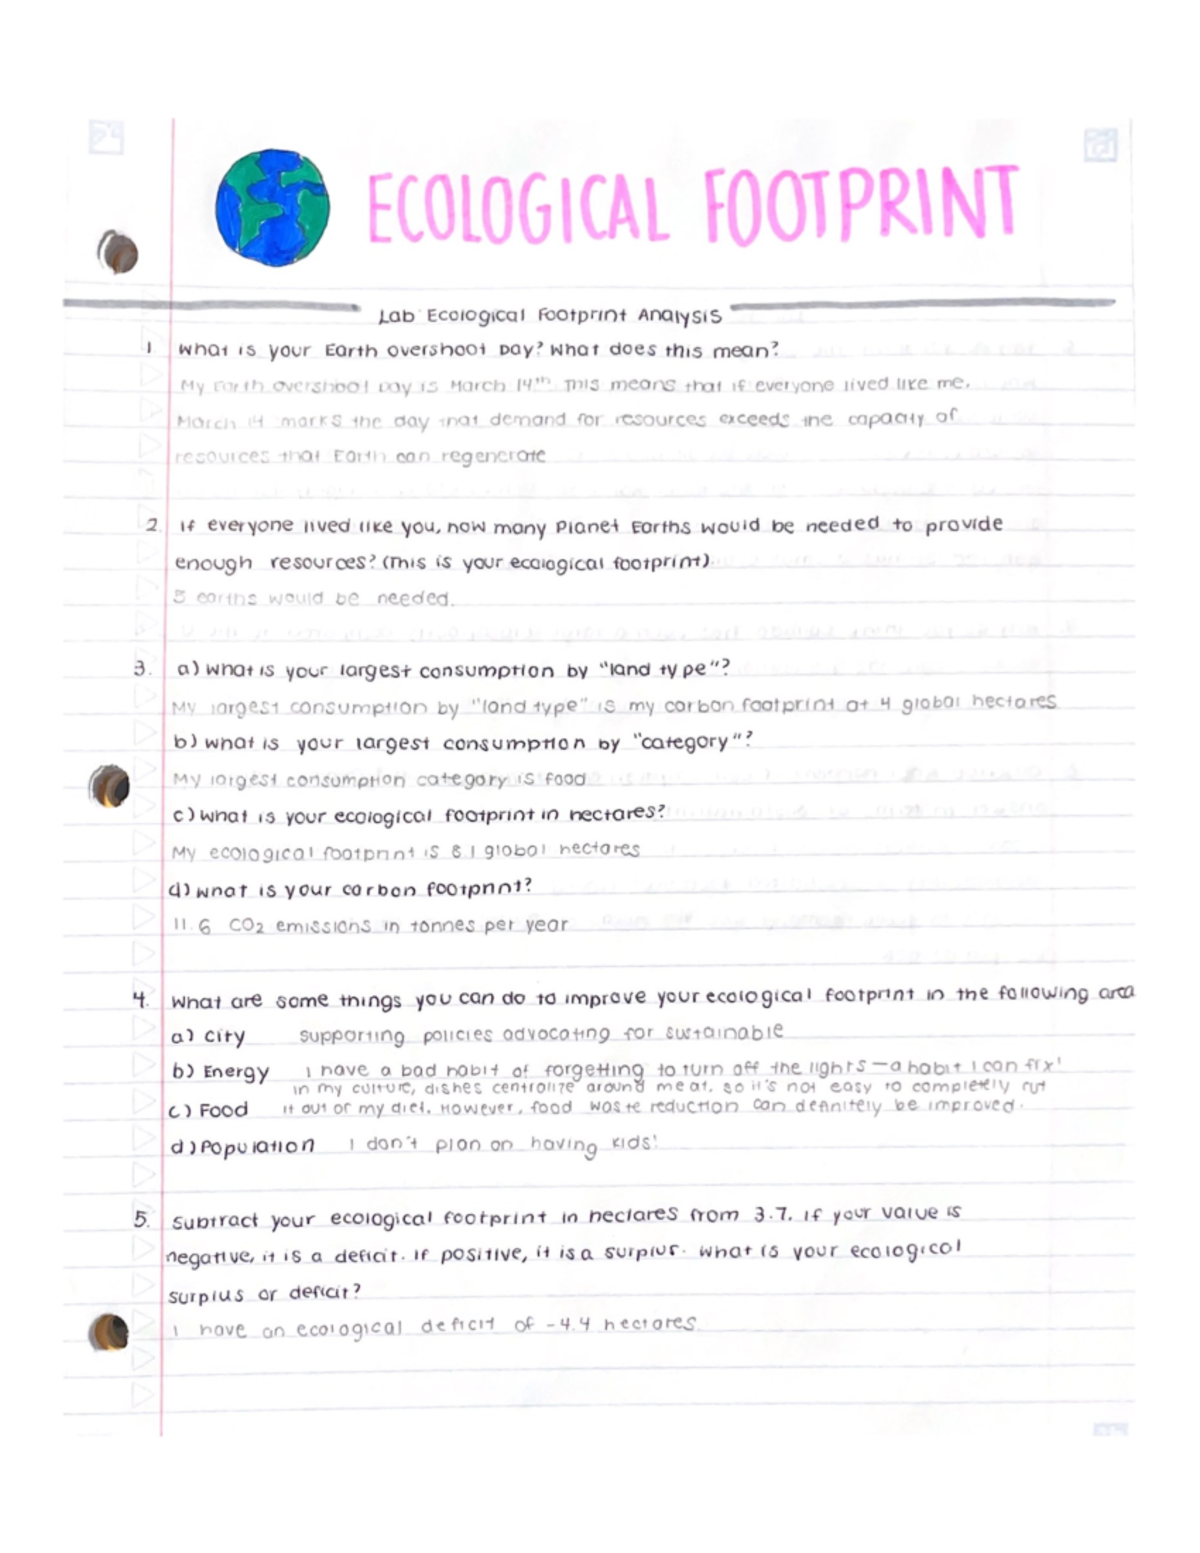 ECOLOGICAL FOOTPRINT
Lab: Ecological Footprint Analysis
1. What is your Earth overshoot Day? What does this mean?
My Earth overshoot Day is March 14th. This means that if everyone lived like me,
March 14 marks the day that demand for resources exceeds the capacity of
resources that Earth can regenerate
2. If everyone lived like you, how many Planet Earths would be needed to provide
enough resources? (This is your ecological footprint).
5 earths would be needed.
3. a) What is your largest consumption by "land type"?
My largest consumption by "land type" is my carbon footprint at 4 global hectares
b) what is your largest consumption by "category"?
My largest consumption category is food
c) what is your ecological footprint in hectares?
My ecological footprint is 8.1 global hectares
d) what is your carbon footprint?
11.6 CO2 emissions in tonnes per year
4. What are some things you can do to improve your ecological footprint in the following area
a) City supporting policies advocating for sustainable
b) Energy I have a bad habit of forgetting to turn off the lights — a habit I can fix!
in my culture, dishes centralize around meat, so it's not easy to completely cut
c) Food it out of my diet. However, food waste reduction can definitely be improved.
d) Population I don't plan on having kids!
5. Subtract your ecological footprint in hectares from 3.7. If your value is
negative, it is a deficit. If positive, it is a surplus. What is your ecological
surplus or deficit?
I have an ecological deficit of -4.4 hectares.